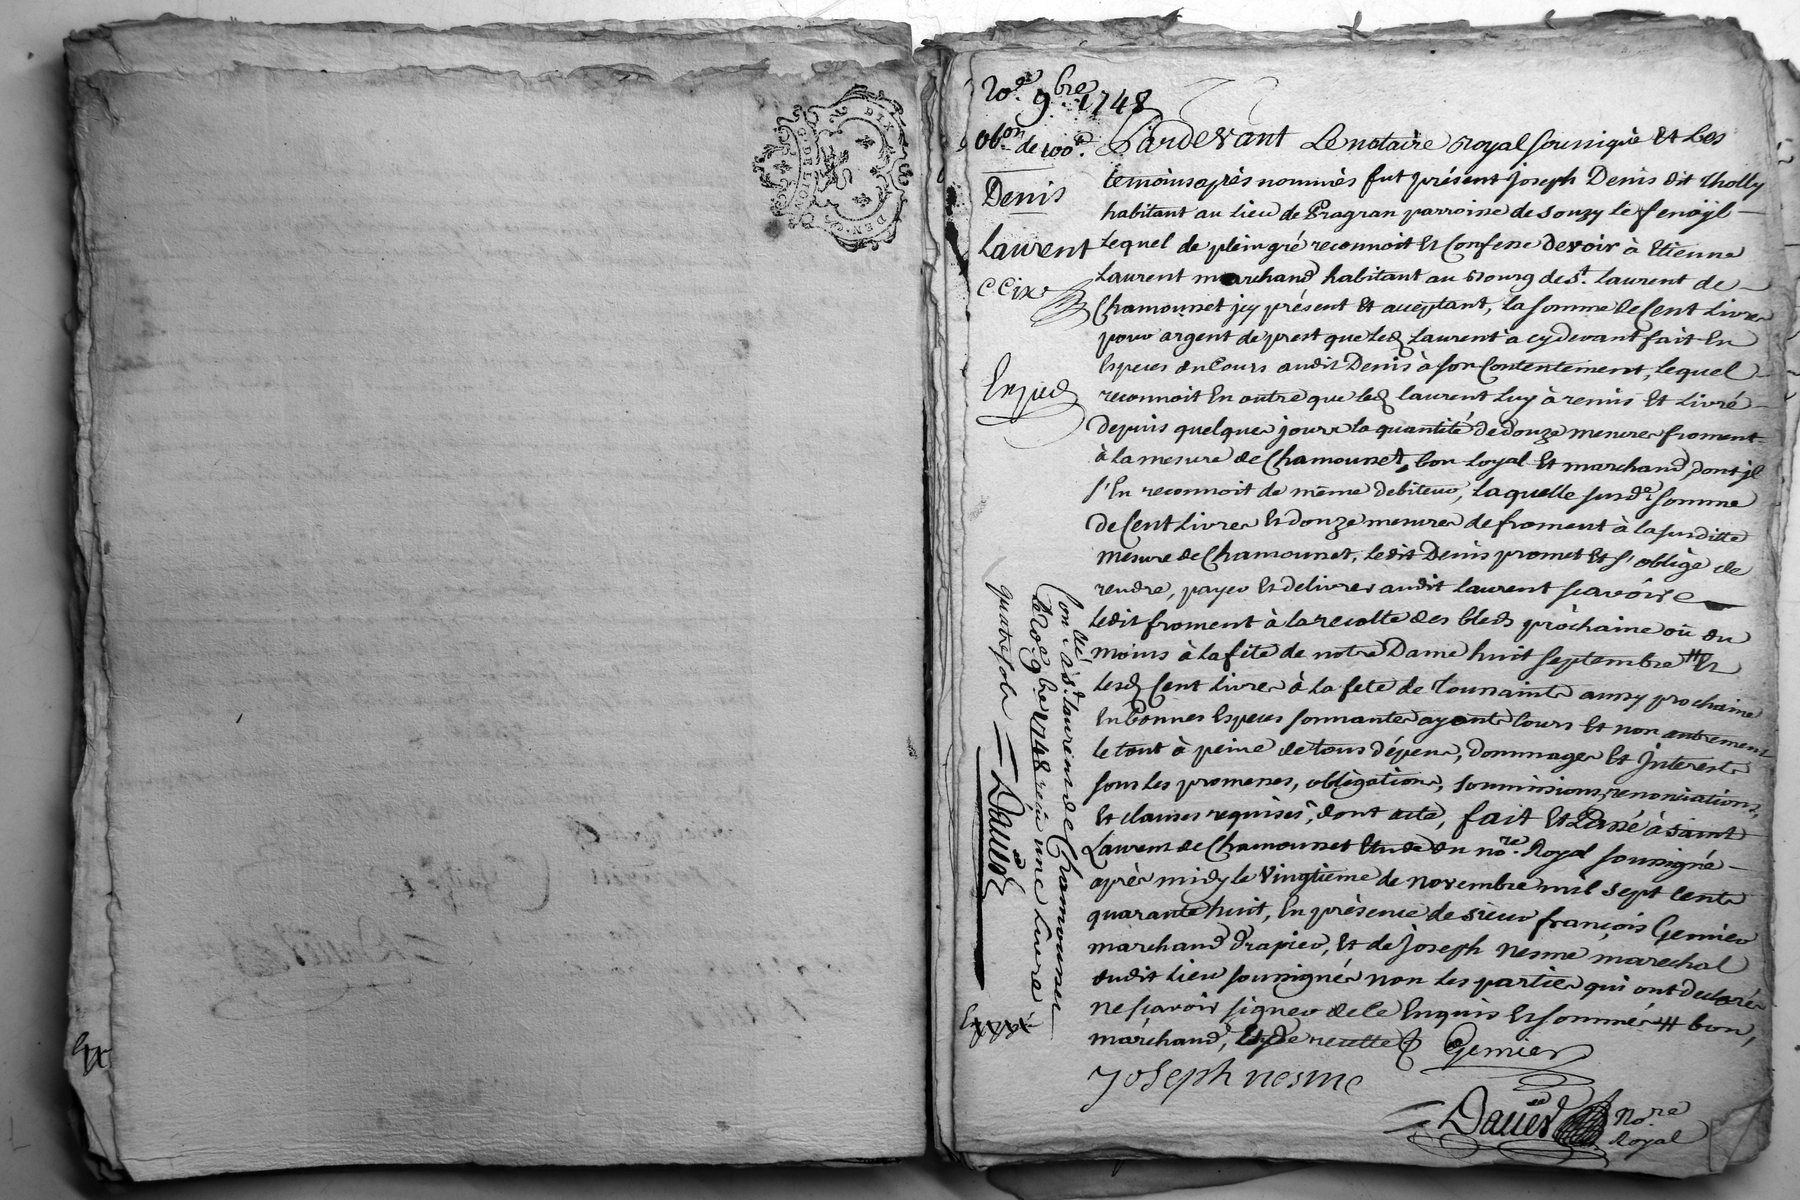 GDE LION
DIX DEN.
20e. 9bre 1748
obon. de 100#.
Denis
Laurent
CCix
Exped
Pardevant Le notaire royal soussigné Et Les
temoins après nommés fut présent Joseph Denis dit tholly
habitant au lieu de Pragran parroisse de Souzy le fenoÿl
Lequel de plein gré reconnoit Et Confesse devoir à Etienne
Laurent marchand habitant au Bourg de st. Laurent de
Chamousset jcy présent Et acceptant, la somme de Cent Livres
pour argent de prest que Led Laurent a cydevant fait En
Especes du Cours audit Denis à son Contentement, Lequel
reconnoit En outre que Led Laurent Luy à remis Et Livré
depuis quelques jours la quantité de douze mesures froment
à la mesure de Chamousset, bon Loyal Et marchand, dont jl
s'En reconnoit de même debiteur, Laquelle susde. somme
de Cent Livres Et douze mesures de froment à la susditte
mesure de Chamousset, ledit Denis promet Et s'oblige de
rendre, payer Et delivrer audit Laurent scavoir
Ledit froment à la recolte des bleds prochaine ou du
moins à la fête de notre Dame huit septembre # Et
Lesd Cent Livres à la fete de Toussaints aussy prochaine
En bonnes Especes sonnantes ayants Cours Et non autrement
le tout à peine de tous dépens, dommages Et Interests
sous Les promesses, obligations, soumissions, renonciations,
Et clauses requises, dont acte, fait Et Passé à saint
Laurent de Chamousset Etude du nore. Royal soussigné
après midy le vingtieme de novembre mil sept cents
quarante huit, En présence de sieur françois Gemier
marchand drapier, Et de Joseph nesme maréchal
dudit Lieu soussignés non Les parties qui ont declarés
ne scavoir signer de ce Enquis Et sommés # bon,
marchand, Et de recette
Gemier
Joseph nesme
Dauer Nore. Royal
Contlé à st. Laurent de Chamousset
le 20e. 9bre 1748 reçu une Livre
quatre sols = Dauer